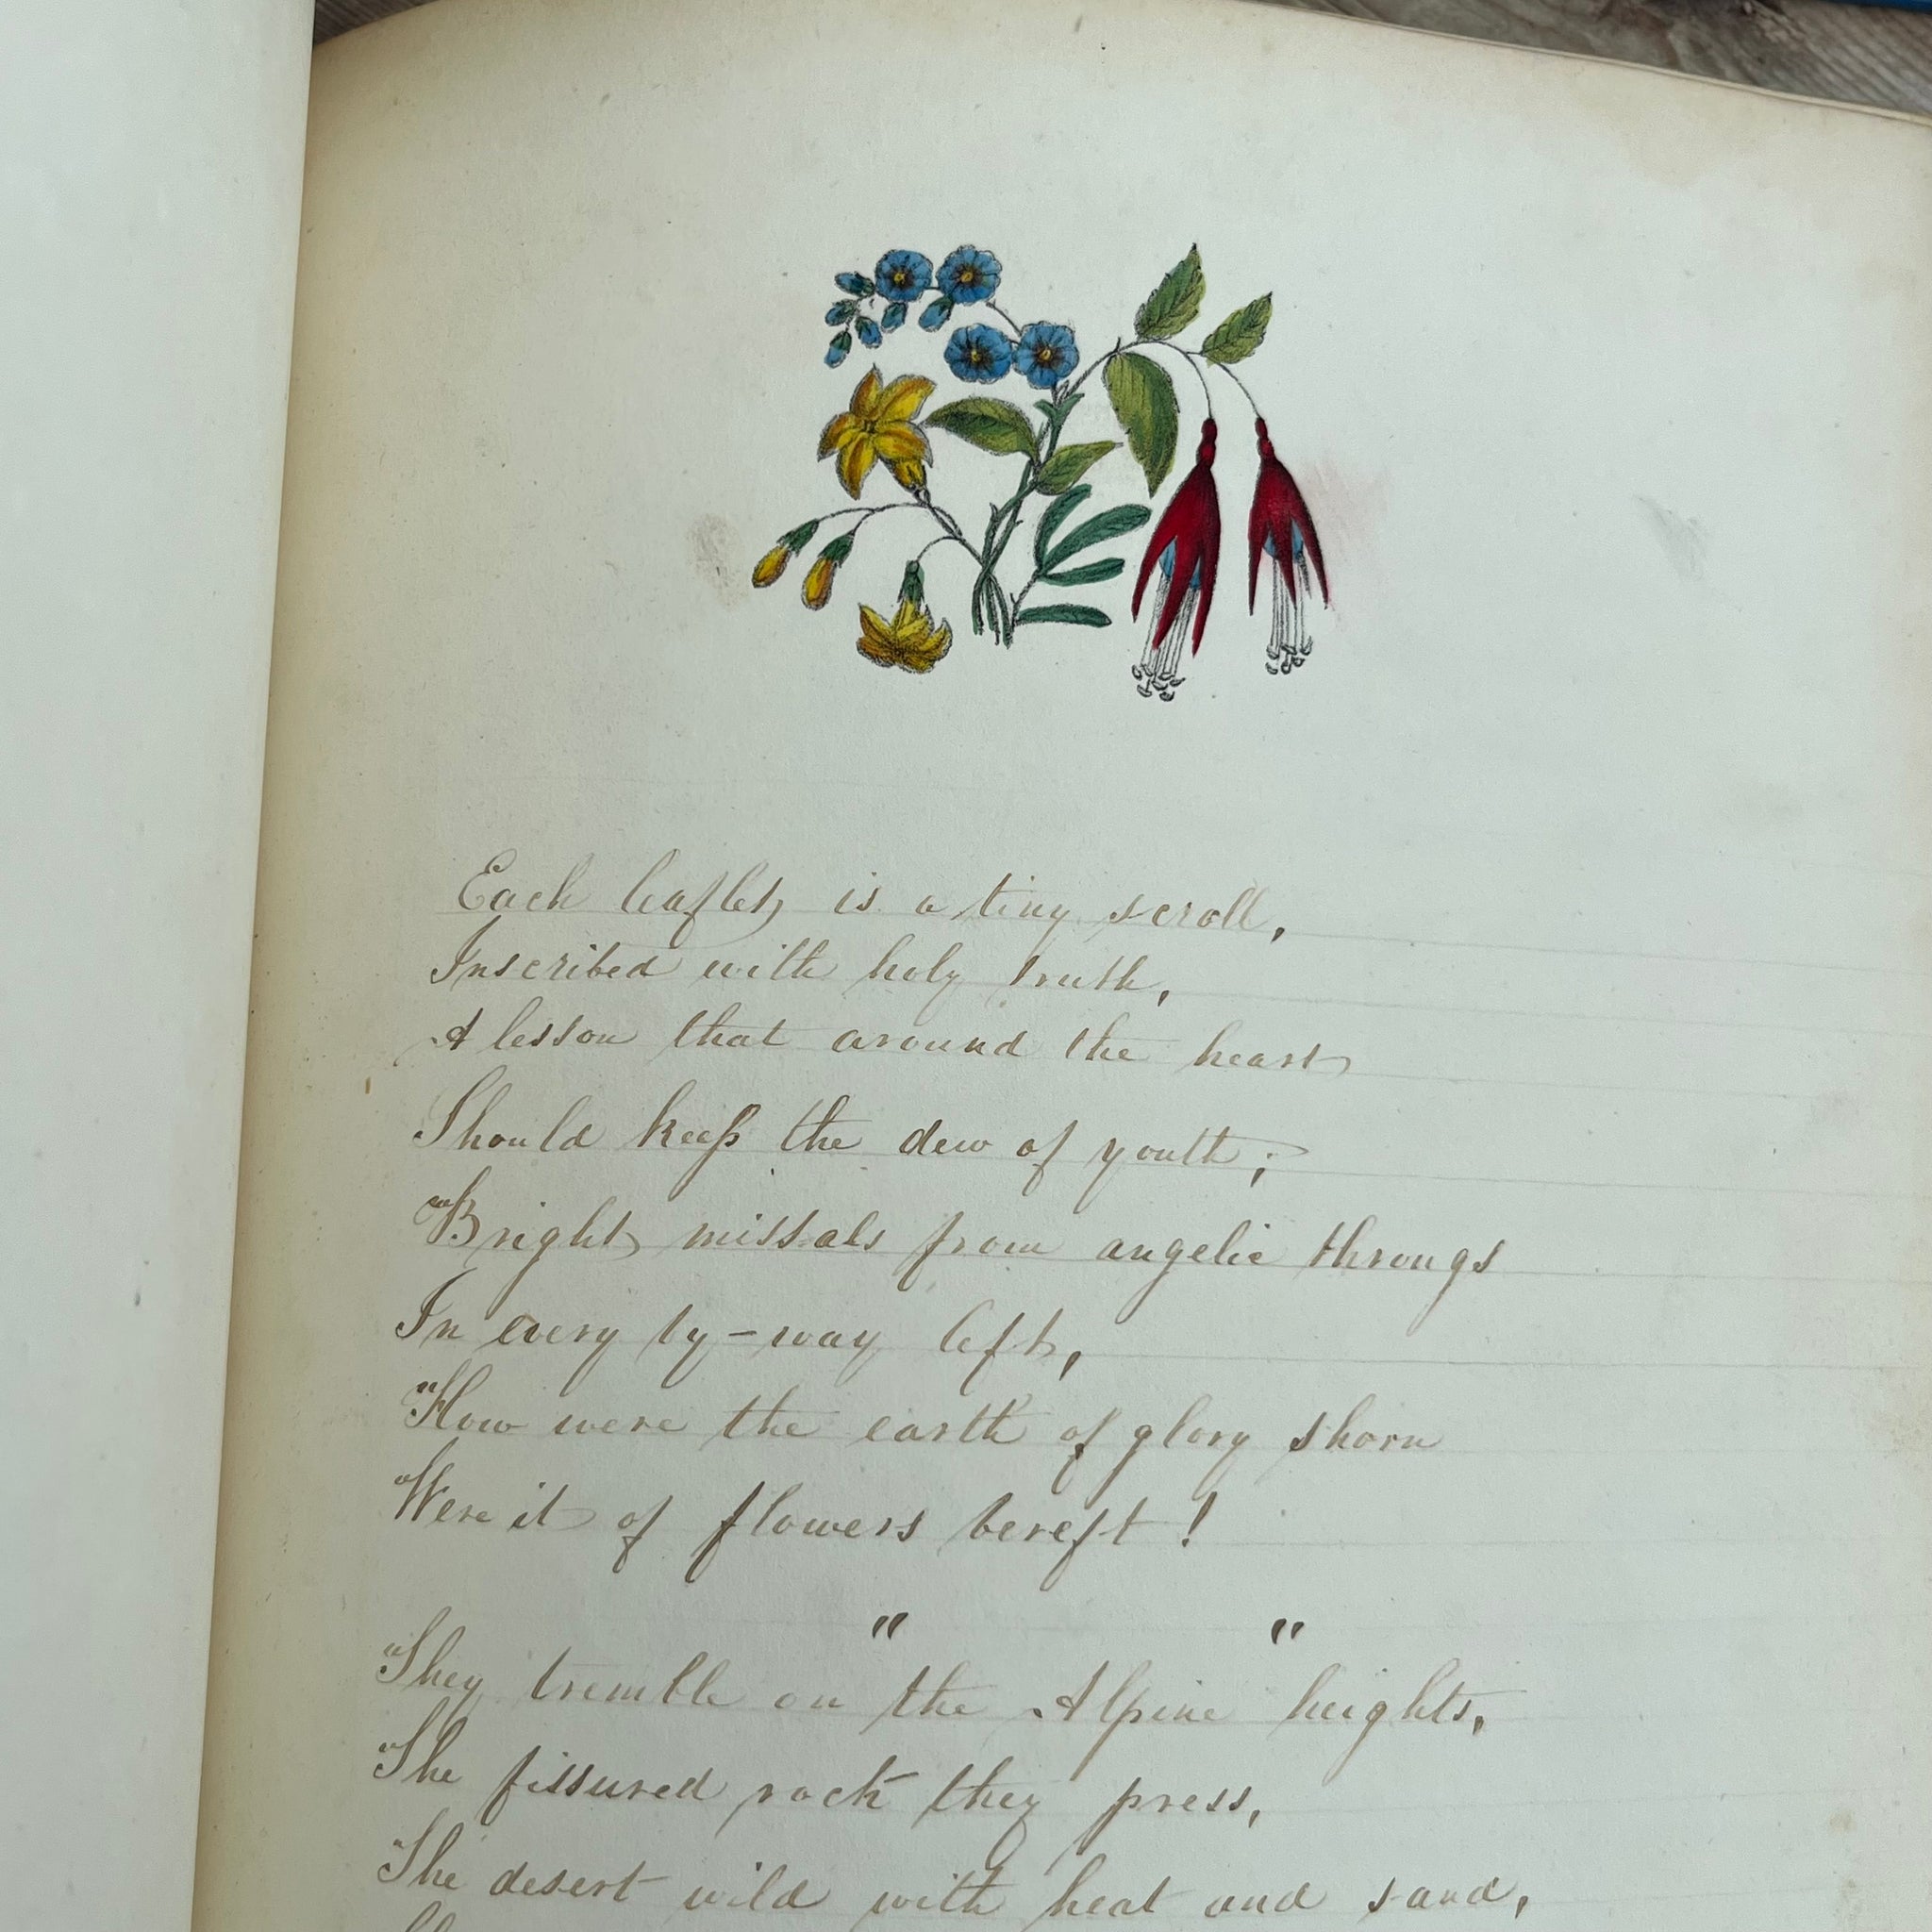 Each leaflet is a tiny scroll,
Inscribed with holy truth,
A lesson that around the heart
Should keep the dew of youth;
Bright missals from angelic throngs
In every by-way left,
How were the earth of glory shorn
Were it of flowers bereft!
" "
They tremble on the Alpine heights,
The fissured rock they press,
The desert wild with heat and sand,